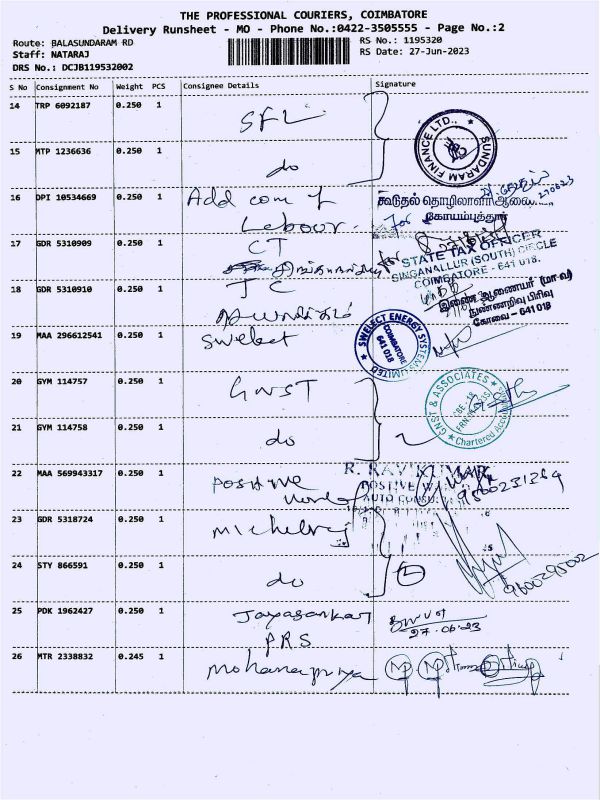 THE PROFESSIONAL COURIERS, COIMBATORE
Delivery Runsheet - MO - Phone No.:0422-3505555 - Page No.:2
Route: BALASUNDARAM RD
RS No.: 1195320
Staff: NATARAJ
RS Date: 27-Jun-2023
DRS No.: DCJB119532002
S No Consignment No Weight PCS Consignee Details Signature
14 TRP 6092187 0.250 1 SFL
SUNDARAM FINANCE LTD.,
15 MTP 1236636 0.250 1 do
16 DPI 10534669 0.250 1 Add com of
Labour.
கூடுதல் தொழிலாளர் ஆணை
கோயம்புத்தூர்
17 GDR 5310909 0.250 1 CT
STATE TAX OFFICER
SINGANALLUR (SOUTH) CIRCLE
COIMBATORE - 641 018.
18 GDR 5310910 0.250 1 JC
இணை ஆணையர் (மா-வ)
நுண்ணறிவு பிரிவு
கோவை - 641 018
19 MAA 296612541 0.250 1 Swelect
SWELECT ENERGY SYSTEMS LIMITED
COIMBATORE
641 018
20 GYM 114757 0.250 1 GNST
GNST & ASSOCIATES
Chartered Accountants
21 GYM 114758 0.250 1 do
22 MAA 569943317 0.250 1 Positive
R. RAVIKUMAR
23 GDR 5318724 0.250 1
24 STY 866591 0.250 1 do
25 PDK 1962427 0.250 1 Jayasankar
27.06.23
PRS
26 MTR 2338832 0.245 1 Mohanapriya
MP MP